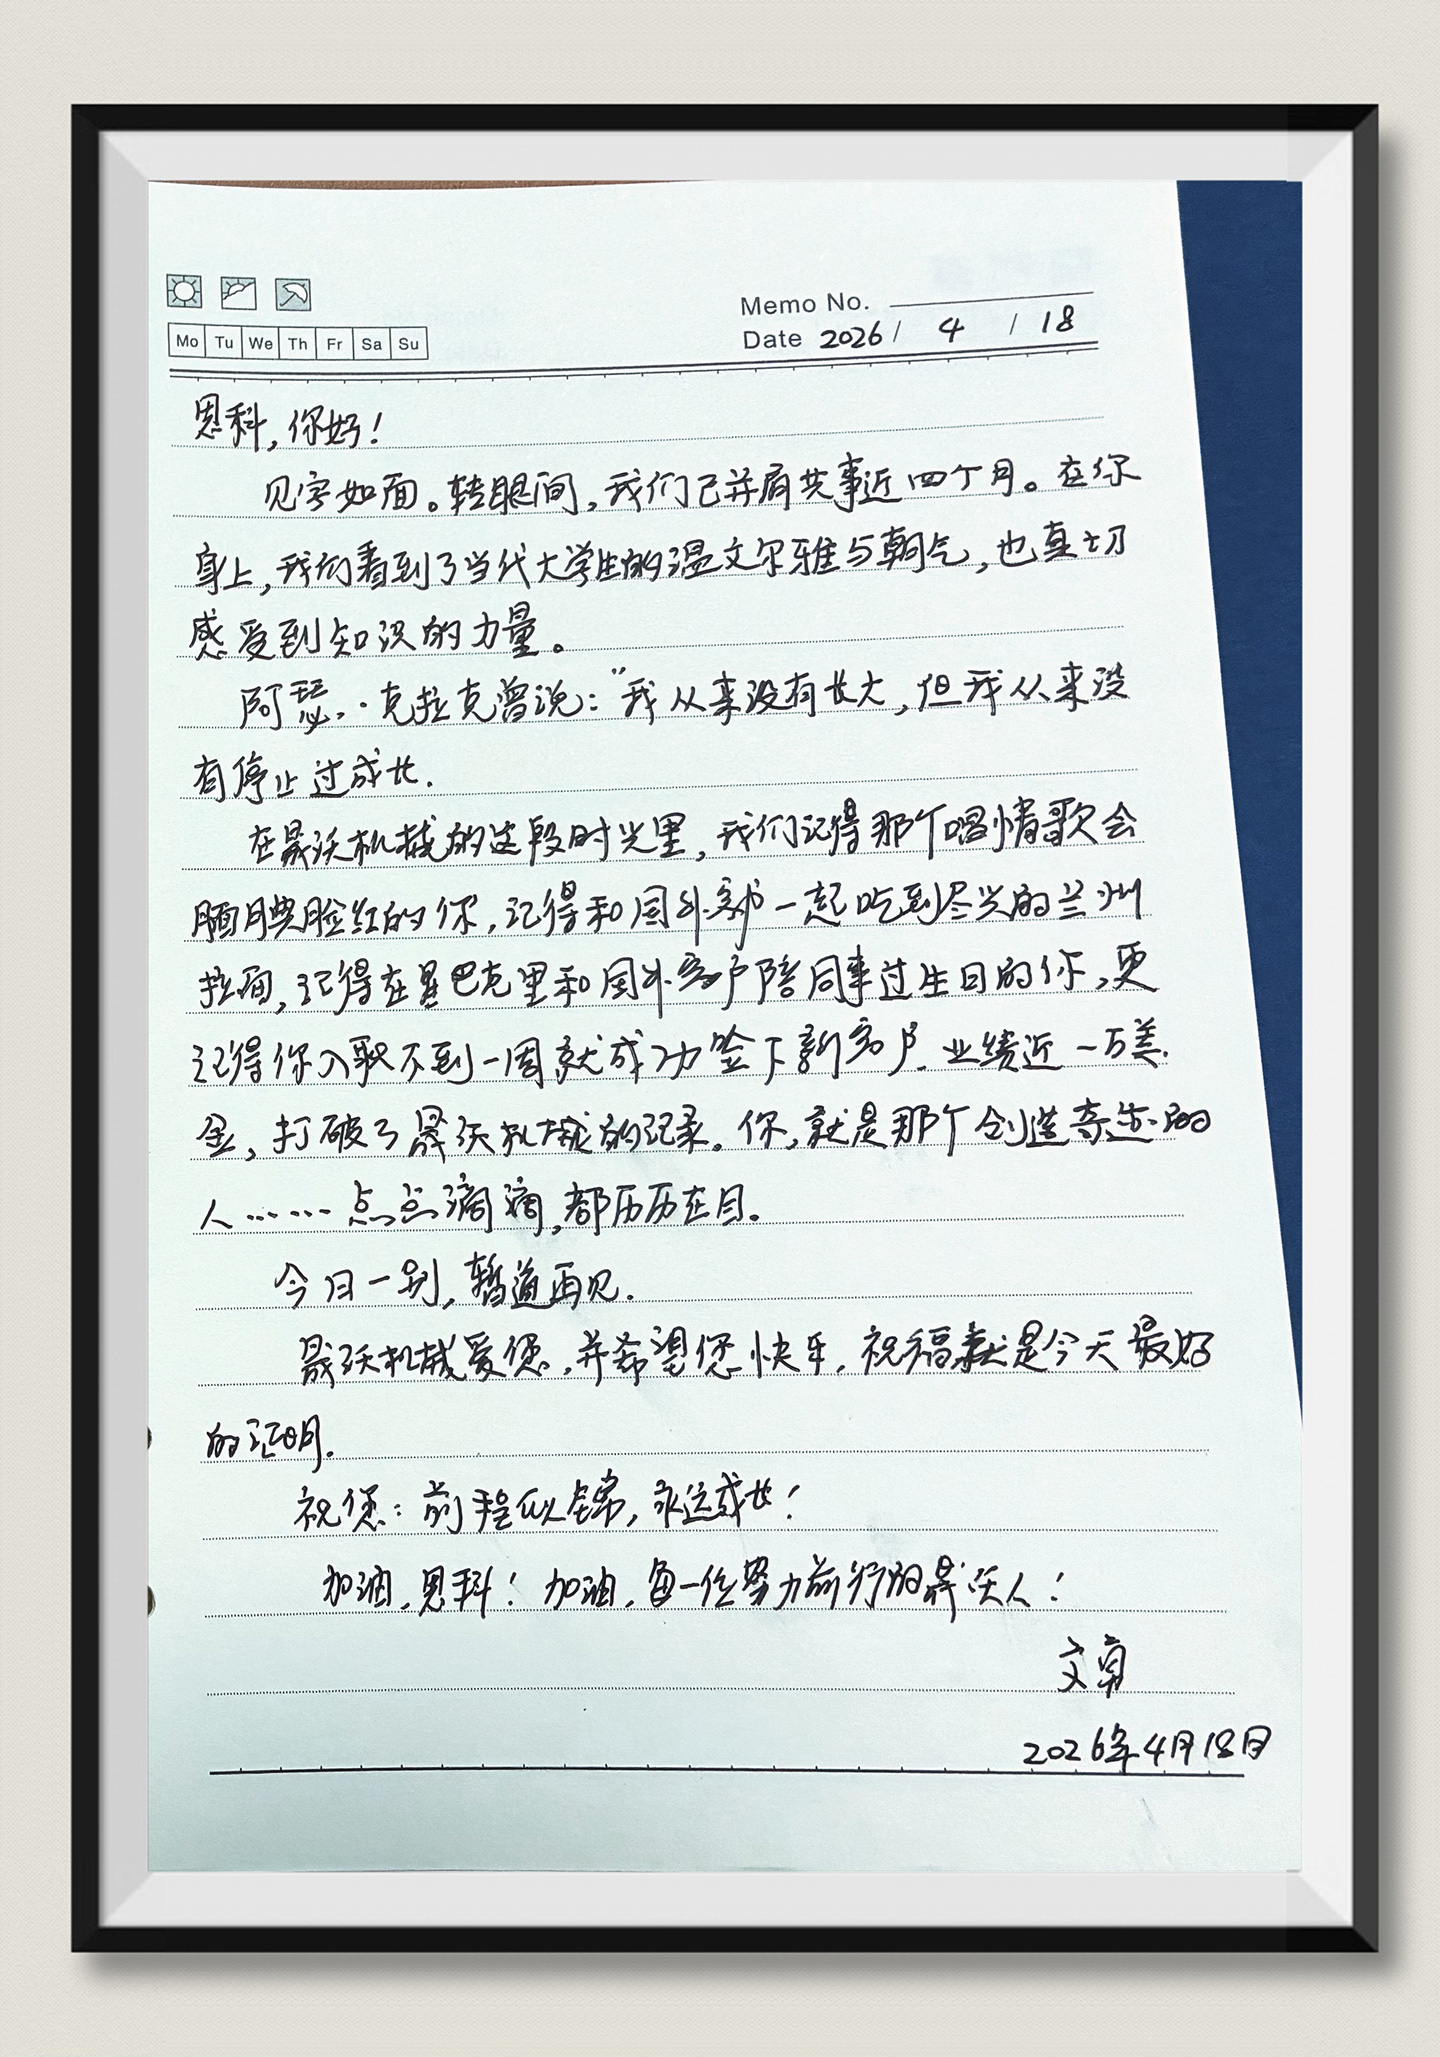 Memo No.
Mo Tu We Th Fr Sa Su
Date 2026 / 4 / 18
恩科,你好!
见字如面。转眼间,我们已并肩共事近四个月。在你
身上,我们看到了当代大学生的温文尔雅与朝气,也真切
感受到知识的力量。
阿瑟·克拉克曾说:“我从来没有长大,但我从来没
有停止过成长.
在晟沃机械的这段时光里,我们记得那个唱情歌会
腼腆脸红的你,记得和国外部一起吃到尽兴的兰州
拉面,记得在星巴克里和国外客户陪同事过生日的你,更
记得你入职不到一周就成功签下新客户.业绩近一万美
金,打破了晟沃机械的记录。你,就是那个创造奇迹的
人……点点滴滴,都历历在目。
今日一别,暂道再见.
晟沃机械爱您,并希望您快乐.祝福就是今天最好
的证明.
祝您:前程似锦,永远成长!
加油,恩科!加油,每一位努力前行的晟沃人!
文卓
2026年4月18日